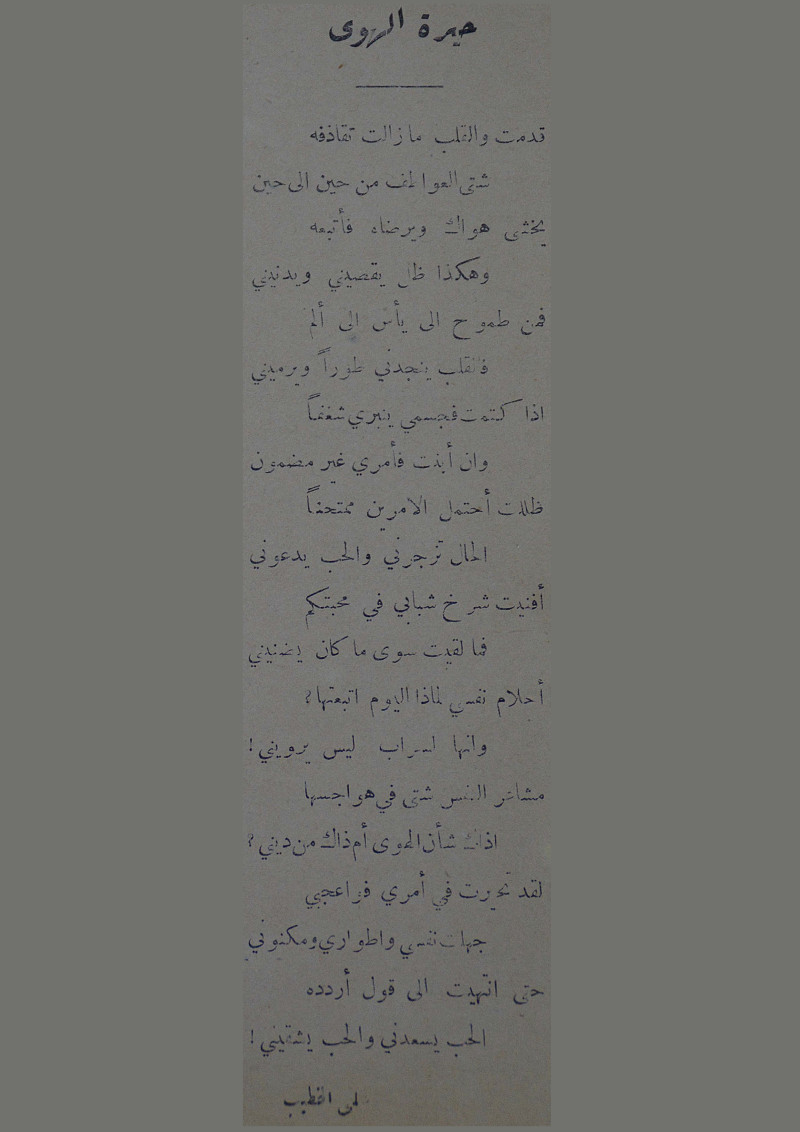 حيرة الهوى
قدمت والقلب ما زالت تقاذفه
شتى العواطف من حين الى حين
يخشى هواك ويرضاه فأتبعه
وهكذا ظل يقصيني ويدنيني
فمن طموح الى يأس الى ألم
فالقلب ينجدني طوراً ويرميني
اذا كتمت فجسمي ينبري شغفاً
وان أبنت فأمري غير مضمون
ظللت أحتمل الامرين ممتحناً
الحال تزجرني والحب يدعوني
أفنيت شرخ شبابي في محبتكم
فما لقيت سوى ما كان يضنيني
أحلام نفسي لماذا اليوم اتبعتها؟
وانها لسراب ليس يرويني!
مشاعر النفس شتى في هواجسها
اذاك شأن الهوى أم ذاك من ديني؟
لقد تحيرت في أمري فواعجبي
جهلت نفسي واطواري ومكنوني
حتى انتهيت الى قول أردده
الحب يسعدني والحب يشقيني!
لمى الخطيب